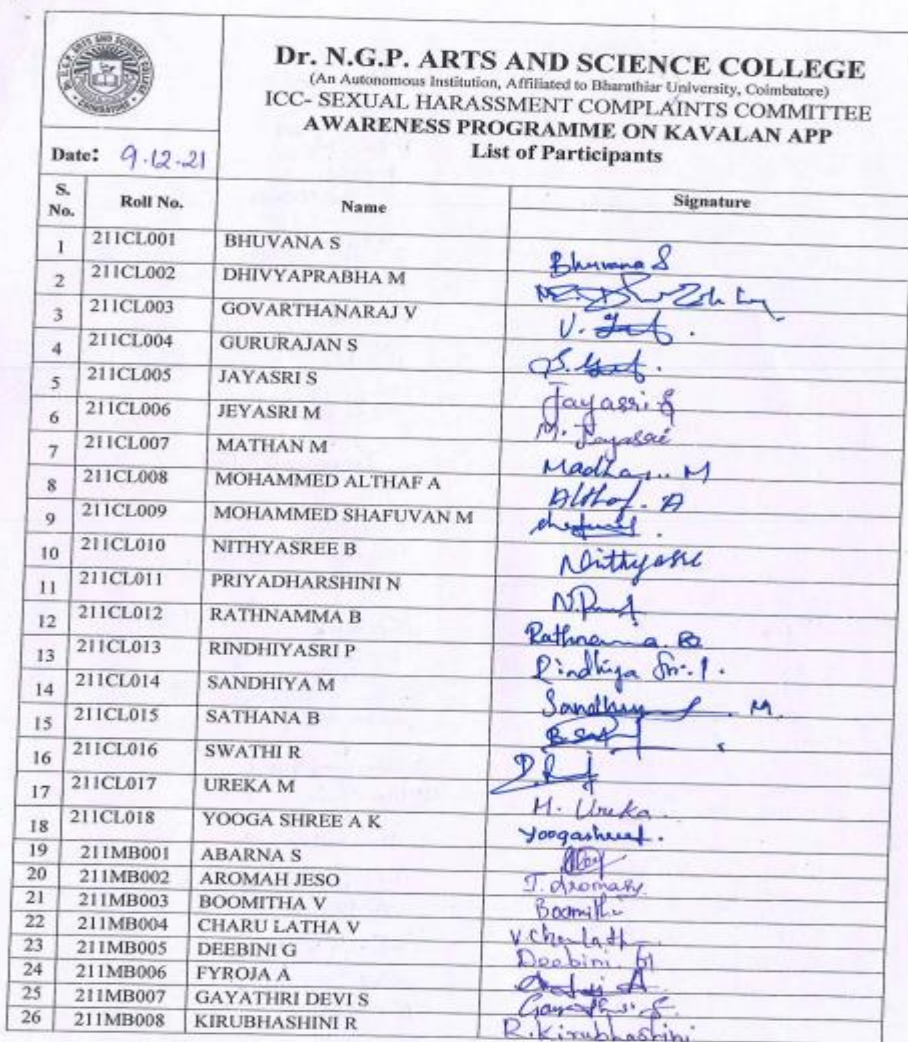 Dr. N.G.P. ARTS AND SCIENCE COLLEGE
(An Autonomous Institution, Affiliated to Bharathiar University, Coimbatore)
ICC- SEXUAL HARASSMENT COMPLAINTS COMMITTEE
AWARENESS PROGRAMME ON KAVALAN APP
List of Participants
Date: 9.12.21
S. No. Roll No. Name Signature
1 211CL001 BHUVANA S Bhuvana S
2 211CL002 DHIVYAPRABHA M
3 211CL003 GOVARTHANARAJ V V.
4 211CL004 GURURAJAN S
5 211CL005 JAYASRI S Jayasri S
6 211CL006 JEYASRI M M.
7 211CL007 MATHAN M M
8 211CL008 MOHAMMED ALTHAF A Althaf. A
9 211CL009 MOHAMMED SHAFUVAN M
10 211CL010 NITHYASREE B
11 211CL011 PRIYADHARSHINI N
12 211CL012 RATHNAMMA B
13 211CL013 RINDHIYASRI P
14 211CL014 SANDHIYA M M.
15 211CL015 SATHANA B
16 211CL016 SWATHI R
17 211CL017 UREKA M M. Ureka
18 211CL018 YOOGA SHREE A K
19 211MB001 ABARNA S
20 211MB002 AROMAH JESO
21 211MB003 BOOMITHA V
22 211MB004 CHARU LATHA V
23 211MB005 DEEBINI G Deebini. G
24 211MB006 FYROJA A
25 211MB007 GAYATHRI DEVI S
26 211MB008 KIRUBHASHINI R R.Kirubhashini